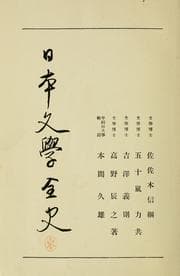 文學博士 佐佐木信綱
文學博士 五十嵐力共
文學博士 吉澤義則
文學博士 高野辰之著
本間久雄
日本文學全史